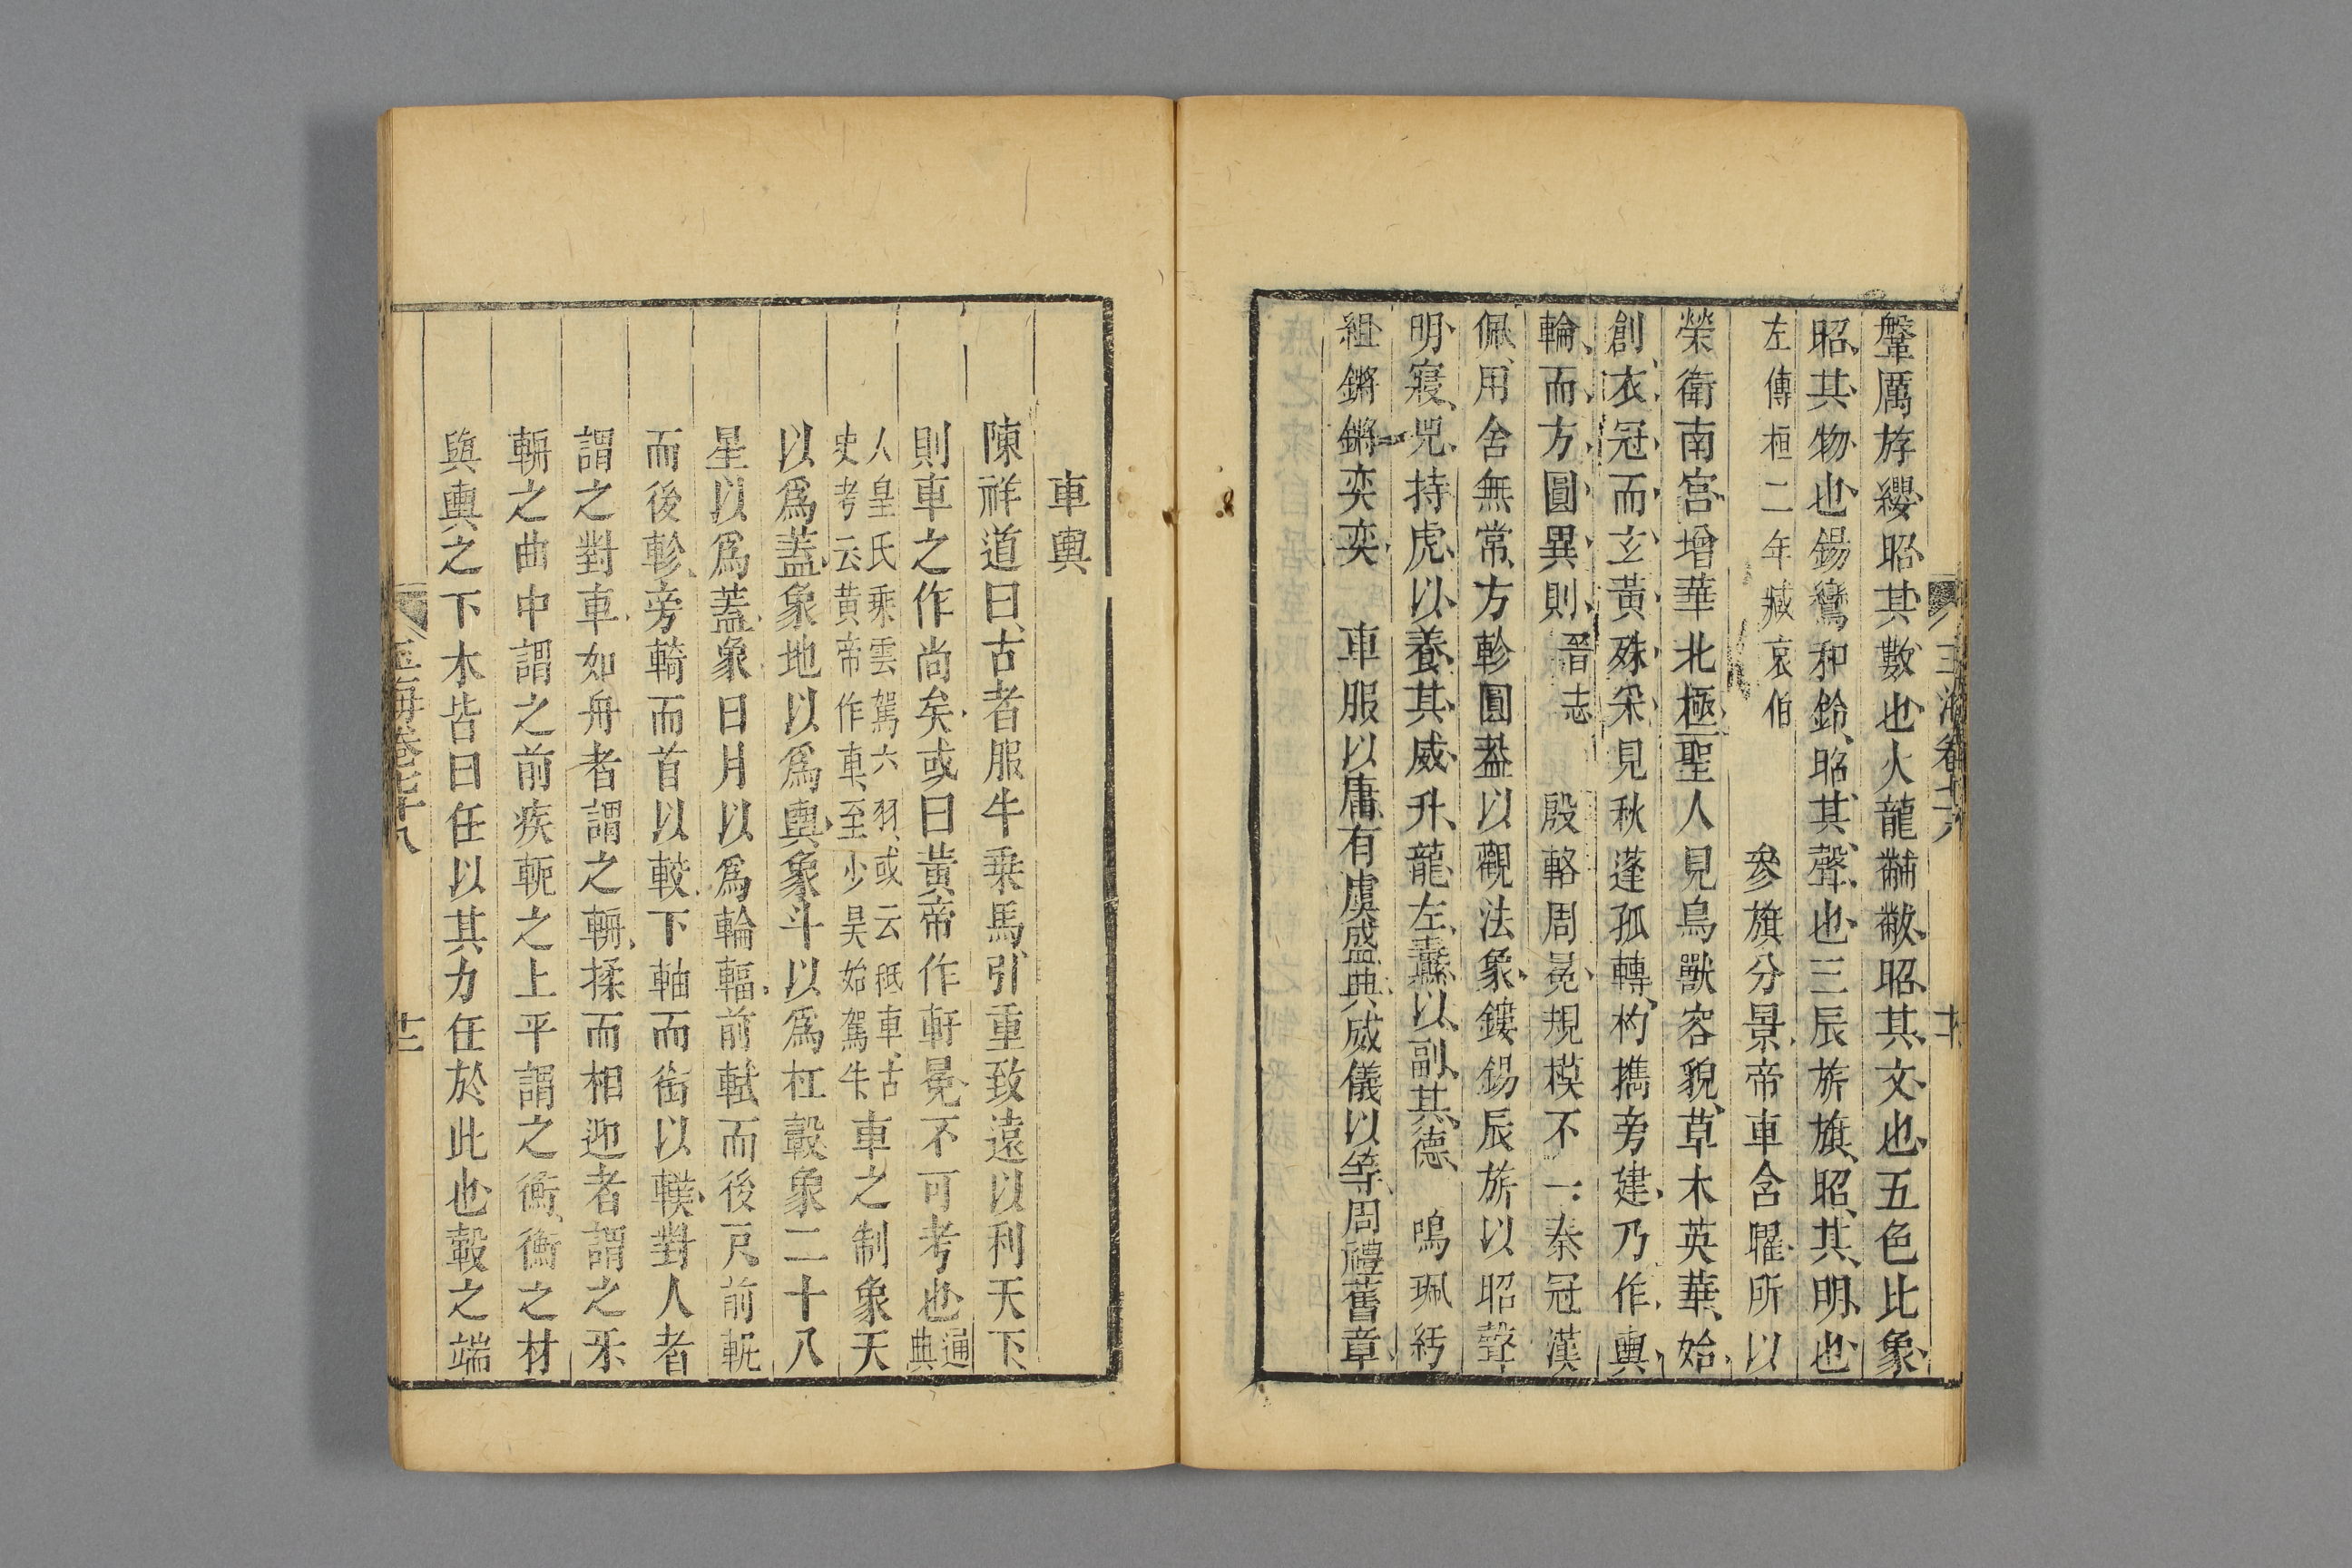 鞶厲斿纓昭其數也火龍黼黻昭其文也五色比象
昭其物也鍚鸞和鈴昭其聲也三辰旂旗昭其明也
左傳桓二年臧哀伯 參旗分景帝車含曜所以
榮衛南宮增華北極聖人見鳥獸容貌草木英華始
創衣冠而玄黃殊采見秋蓬孤轉杓擕旁建乃作輿
輪而方圓異則晉志 殷輅周冕規模不一秦冠漢
佩用舍無常方軫圓蓋以觀法象鏤鍚辰旂以昭聲
明寢兕持虎以養其威升龍左纛以副其德 鳴珮紆
組鏘鏘奕奕 車服以庸有虞盛典威儀以等周禮舊章
車輿
陳祥道曰古者服牛乗馬引重致遠以利天下
則車之作尚矣或曰黃帝作軒冕不可考也通典
人皇氏乘雲駕六羽或云秪車古
史考云黃帝作車至少昊始駕牛車之制象天
以爲蓋象地以爲輿象斗以爲杠轂象二十八
星以爲蓋象日月以爲輪輻前軾而後戶前軏
而後軫旁輢而首以較下軸而銜以轐對人者
謂之對車如舟者謂之輈揉而相迎者謂之牙
輈之曲中謂之前疾軛之上平謂之衡衡之材
與輿之下木皆曰任以其力任於此也轂之端
玉海卷七十八